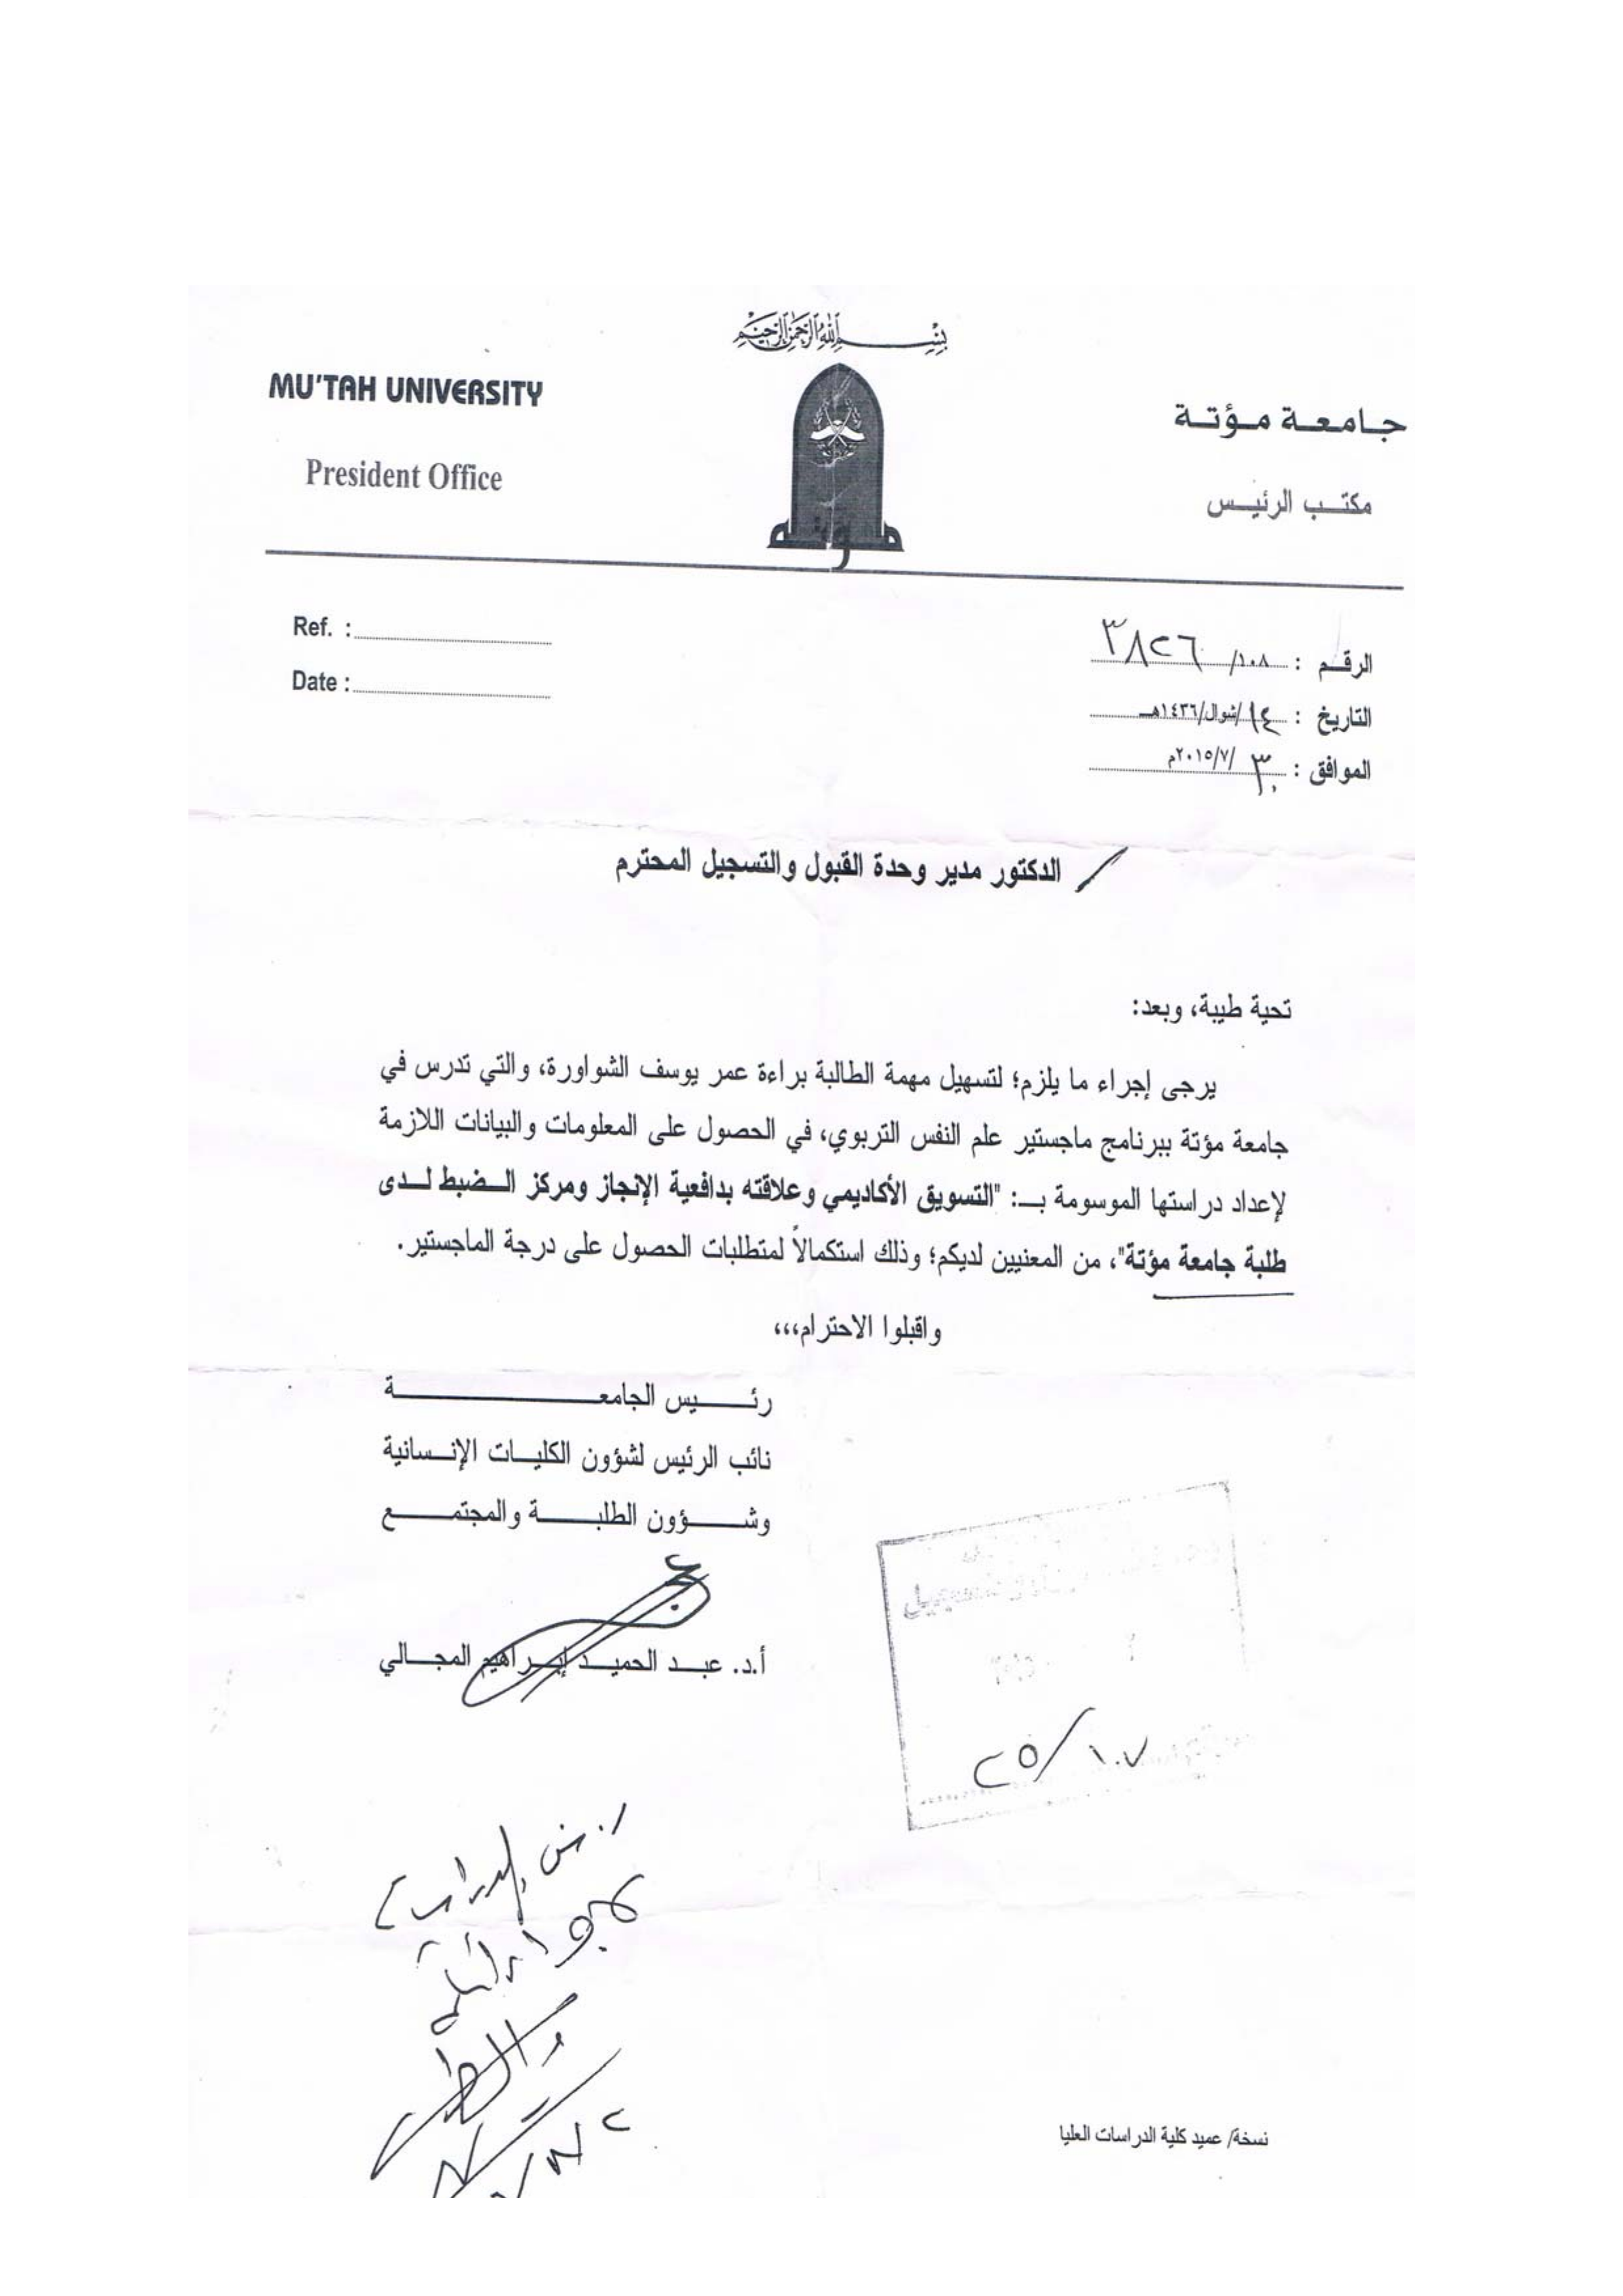 بسم الله الرحمن الرحيم
MU'TAH UNIVERSITY
جامعة مؤتة
President Office
مكتب الرئيس
مؤتة
Ref. :
Date :
الرقم : ١٠٨/ ٣٨٢٦
التاريخ : ١٤/شوال/١٤٣٦هـ
الموافق : ٣٠/٧/٢٠١٥م
الدكتور مدير وحدة القبول والتسجيل المحترم
تحية طيبة، وبعد:
يرجى إجراء ما يلزم؛ لتسهيل مهمة الطالبة براءة عمر يوسف الشواورة، والتي تدرس في
جامعة مؤتة ببرنامج ماجستير علم النفس التربوي، في الحصول على المعلومات والبيانات اللازمة
لإعداد دراستها الموسومة بـ: "التسويق الأكاديمي وعلاقته بدافعية الإنجاز ومركز الضبط لدى
طلبة جامعة مؤتة"، من المعنيين لديكم؛ وذلك استكمالاً لمتطلبات الحصول على درجة الماجستير.
واقبلوا الاحترام،،،
رئيس الجامعة
نائب الرئيس لشؤون الكليات الإنسانية
وشؤون الطلبة والمجتمع
أ.د. عبد الحميد إبراهيم المجالي
٢٥/١٠٧
نسخة/ عميد كلية الدراسات العليا